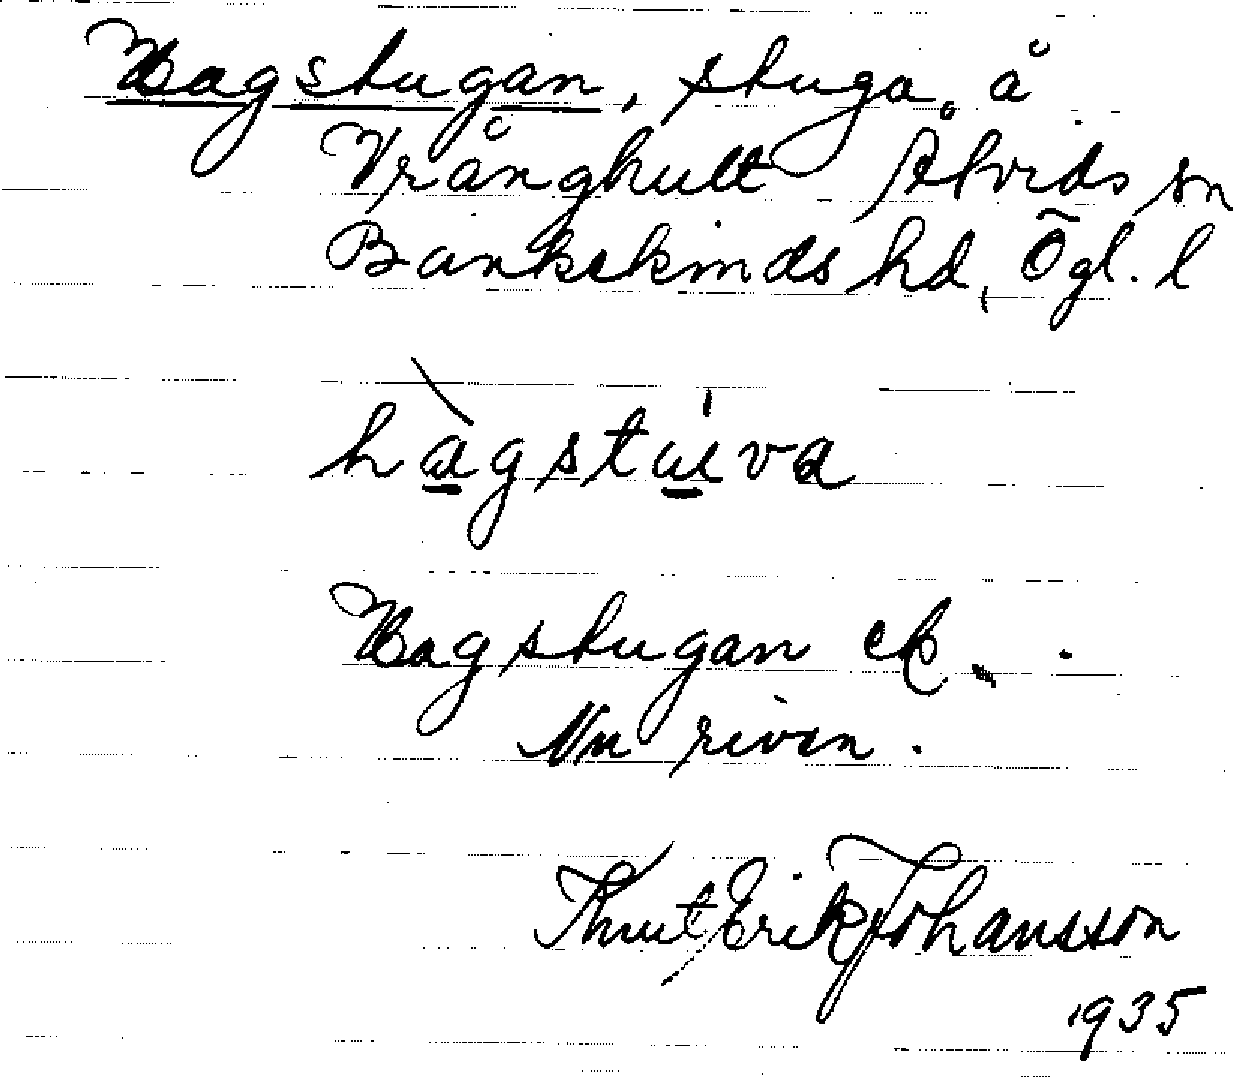 Hagstugan, stuga å
Vrånghult Åtvids sn
Bankekinds hd, Ögl. l
Hagstugan ek.
Nu riven.
Knut Erik Johansson
1935